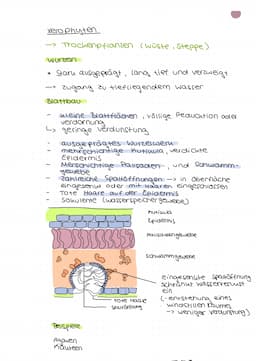 Xerophyten
→ Trockenpflanzen (Wüste, Steppe)
Wurzeln
• stark ausgeprägt, lang, tief und verzweigt
→ Zugang zu tiefliegendem Wasser
Blattbau
- kleine Blattflächen, völlige Reduktion oder
Verdornung
↳ geringe Verdunstung
- ausgeprägtes Wurzelwerk
- mehrschichtige Kutikula, verdickte
Epidermis
- Mehrschichtige Palisaden und Schwamm-
gewebe
- zahlreiche Spaltöffnungen → in Oberfläche
eingesenkt oder mit Haaren eingeschlossen
- Tote Haare auf der Epidermis
- Sukkulente (Wasserspeichergewebe)
Kutikula
Epidermis
Palisadengewebe
Schwammgewebe
eingesenkte Spaltöffnung
schränkt Wasserverlust
ein
(-entstehung eines
windstillen Raumes
→ weniger Verdunstung)
Tote Haare
Spaltöffnung
Beispiele
Agaven
Kakteen